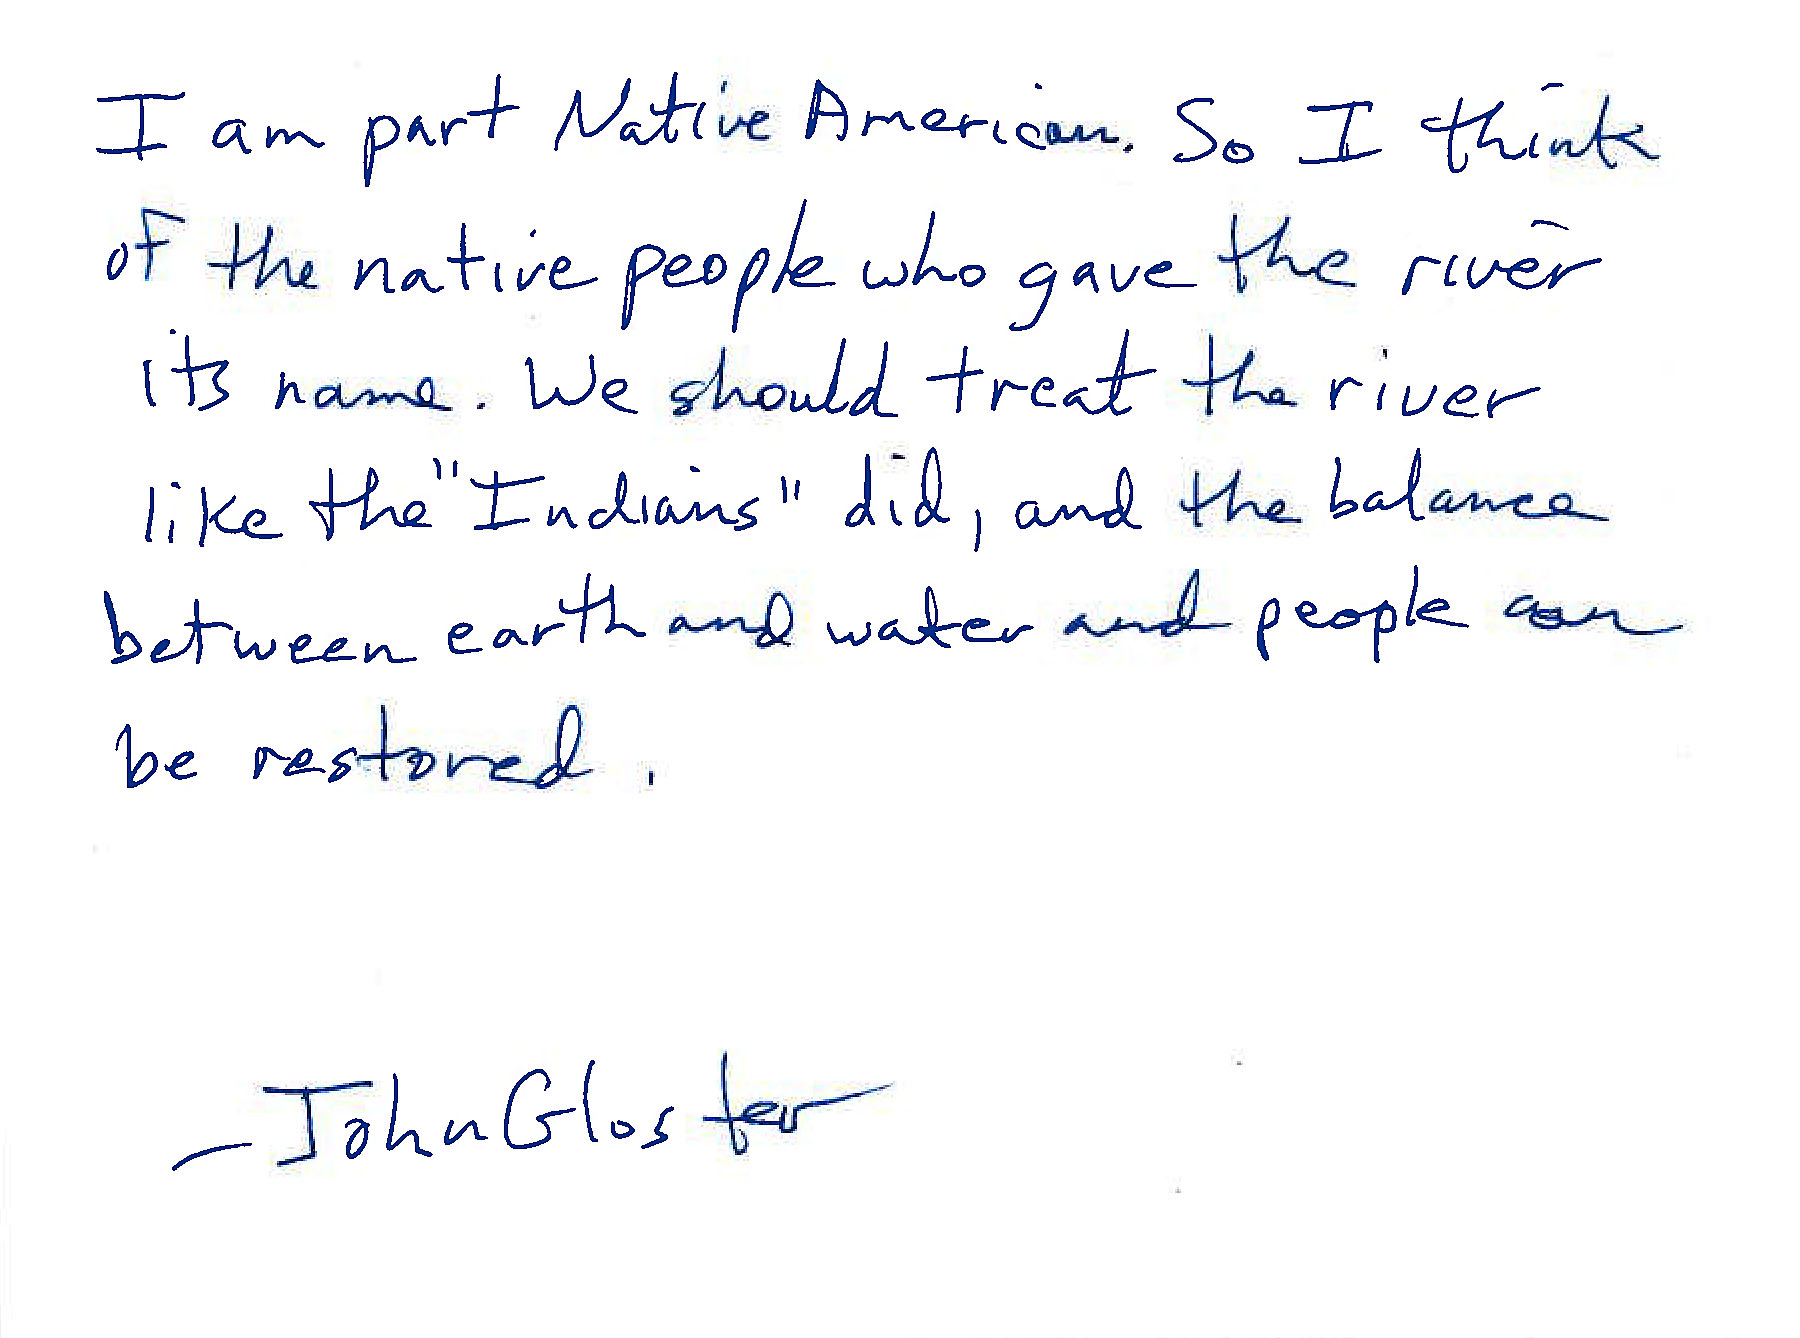 I am part Native American. So I think
of the native people who gave the river
its name. We should treat the river
like the "Indians" did, and the balance
between earth and water and people can
be restored.
- John Gloster